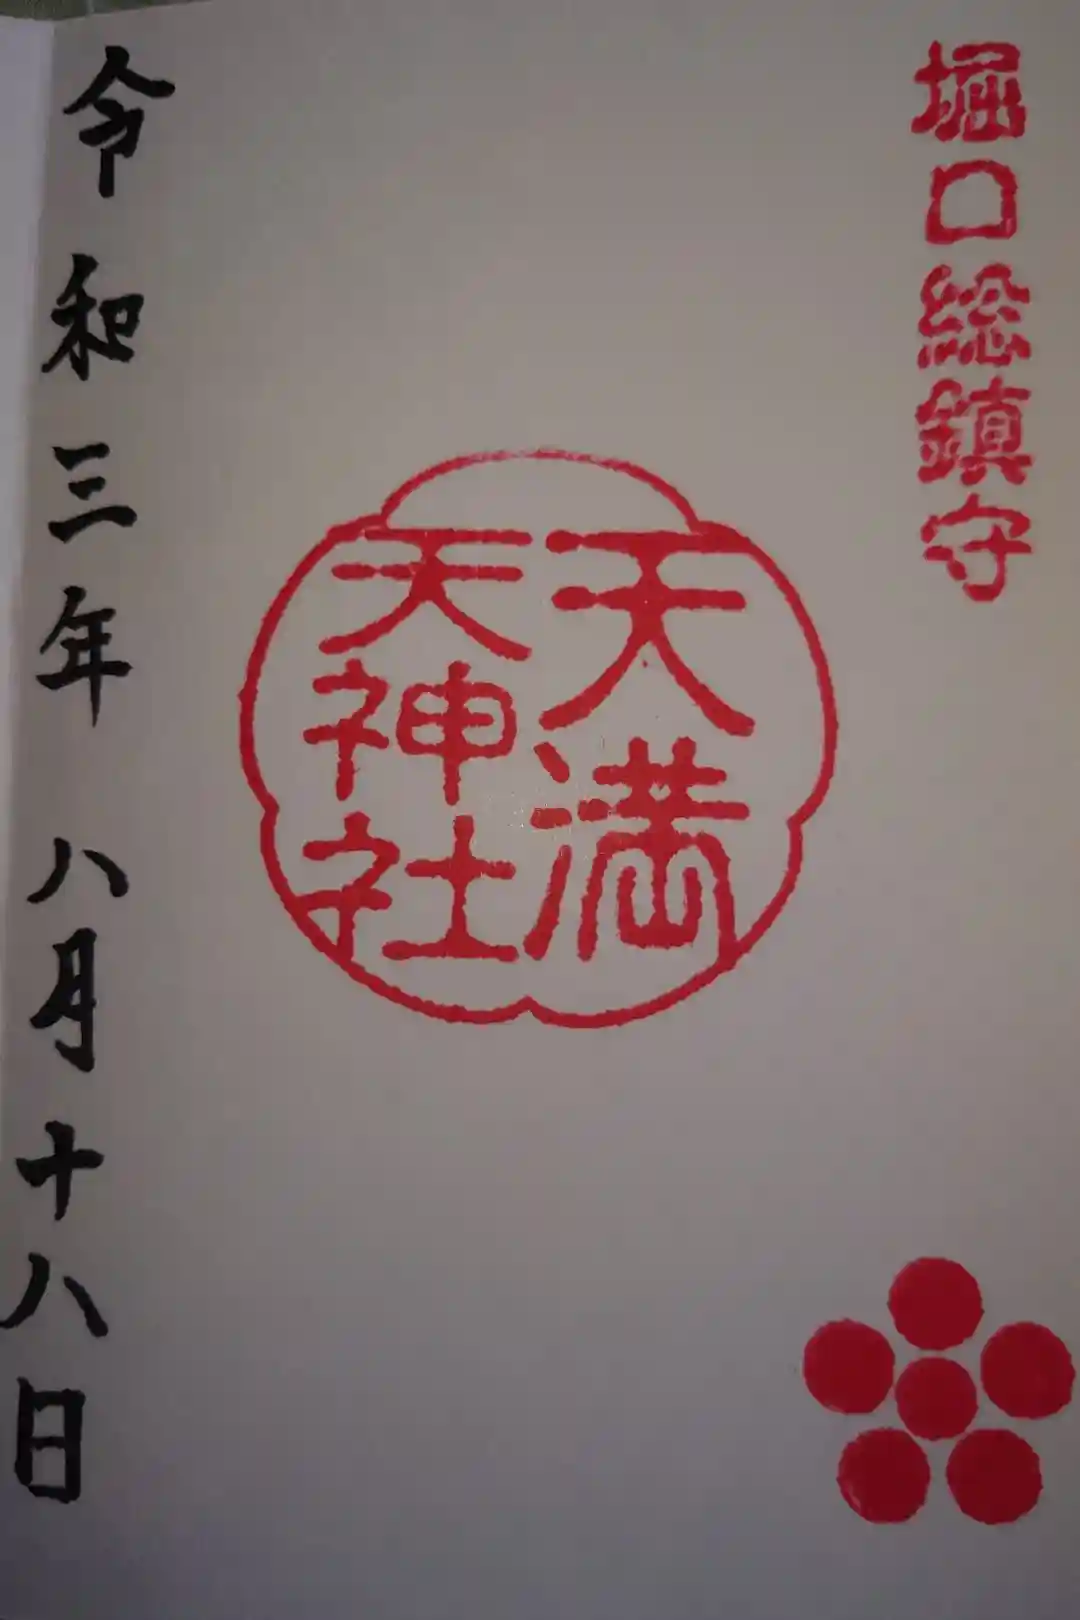 堀口総鎮守
天満
天神社
令和三年八月十八日